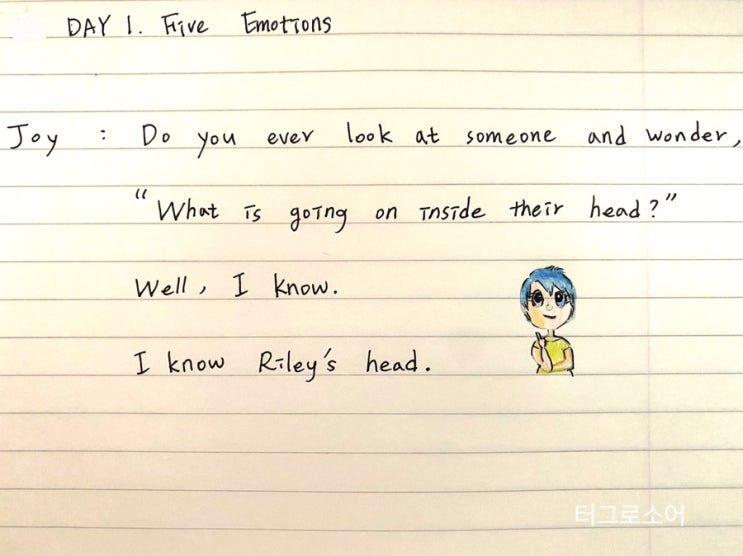 DAY 1. Five Emotions
Joy : Do you ever look at someone and wonder,
"What is going on inside their head?"
Well, I know.
I know Riley's head.
터그로소어